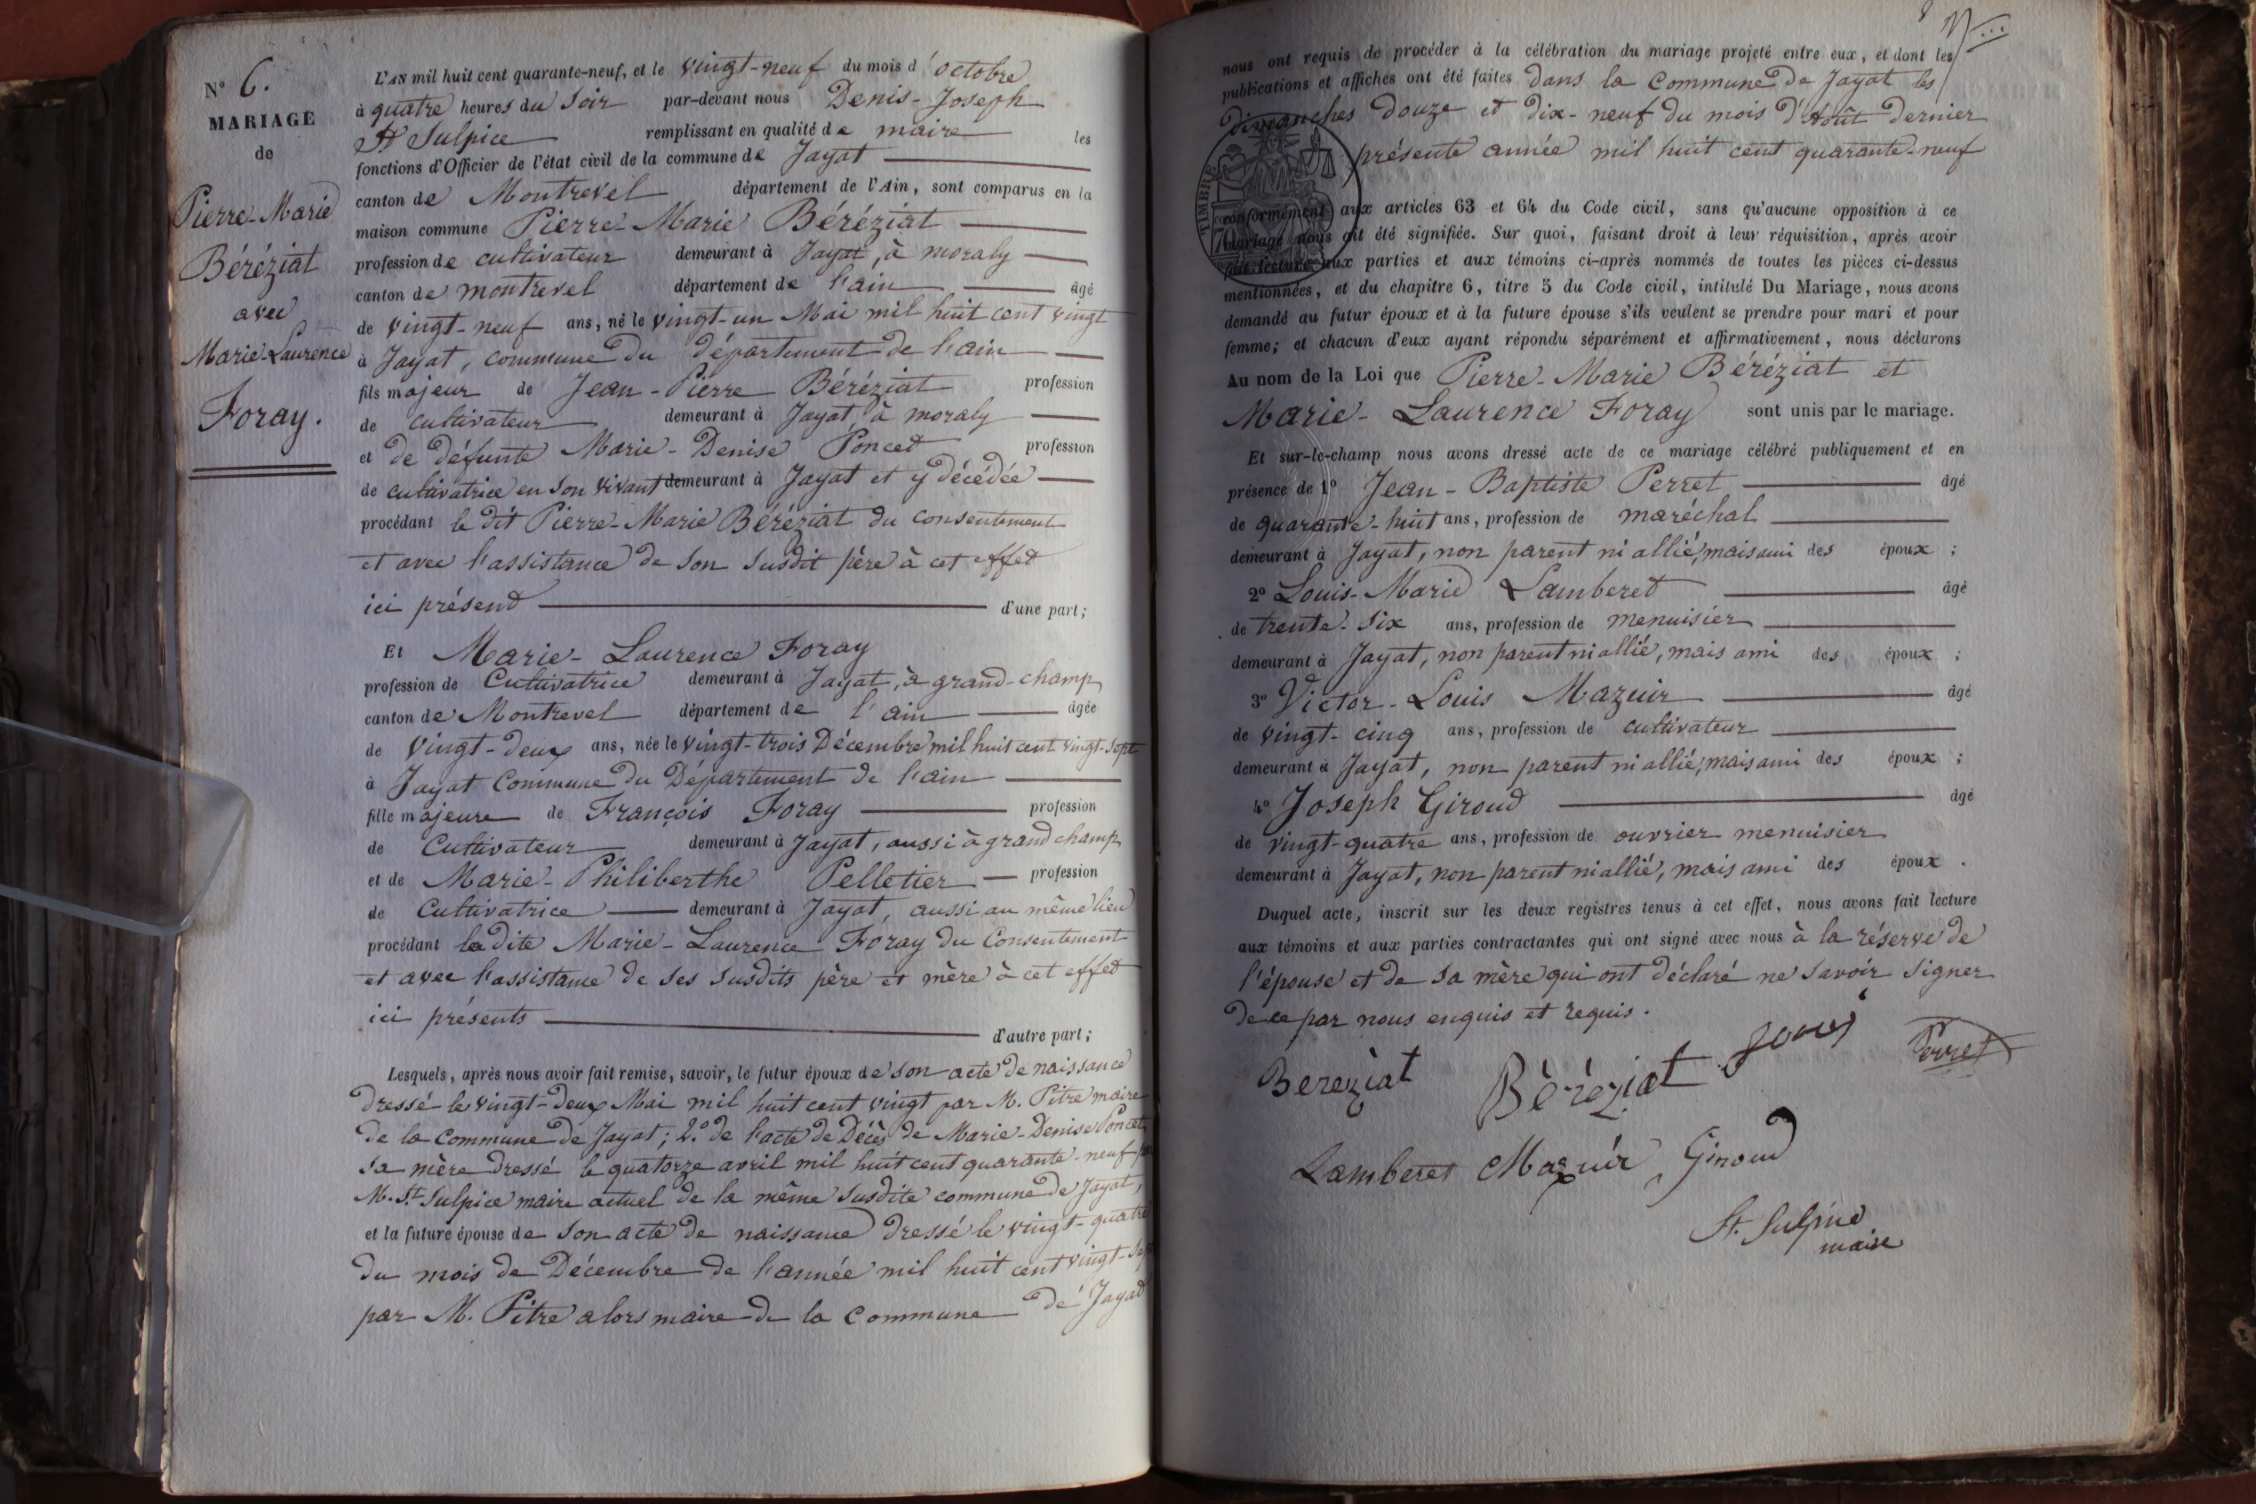 N° 6.
MARIAGE
de
Pierre-Marie
Béréziat
avec
Marie-Laurence
Foray.
L'AN mil huit cent quarante-neuf, et le vingt-neuf du mois d'octobre
à quatre heures du soir par-devant nous Denis-Joseph
St Sulpice remplissant en qualité de maire les
fonctions d'Officier de l'état civil de la commune de Jayat
canton de Montrevel département de l'Ain, sont comparus en la
maison commune Pierre-Marie Béréziat
profession de cultivateur demeurant à Jayat, à moraly
canton de montrevel département de l'ain âgé
de vingt-neuf ans, né le vingt-un Mai mil huit cent vingt
à Jayat, commune du département de l'ain
fils majeur de Jean-Pierre Béréziat profession
de cultivateur demeurant à Jayat à moraly
et de défunte Marie-Denise Poncet profession
de cultivatrice en son vivant demeurant à Jayat et y décédée
procédant le dit Pierre-Marie Béréziat du consentement
et avec l'assistance de son susdit père à cet effet
ici présend d'une part;
Et Marie-Laurence Foray
profession de Cultivatrice demeurant à Jayat, à grand-champ
canton de Montrevel département de l'ain âgée
de vingt-deux ans, née le vingt-trois Décembre mil huit cent vingt-sept
à Jayat Commune du Département de l'ain
fille majeure de François Foray profession
de Cultivateur demeurant à Jayat, aussi à grand champ
et de Marie-Philiberthe Pelletier profession
de Cultivatrice demeurant à Jayat, aussi au même lieu
procédant la dite Marie-Laurence Foray du Consentement
et avec l'assistance de ses susdits père et mère à cet effet
ici présents d'autre part;
Lesquels, après nous avoir fait remise, savoir, le futur époux de son acte de naissance
dressé le vingt-deux Mai mil huit cent vingt par M. Pitre maire
de la commune de Jayat; 2.° de l'acte de Décès de Marie-Denise Poncet
sa mère dressé le quatorze avril mil huit cent quarante-neuf par
M. St Sulpice maire actuel de la même susdite commune de Jayat,
et la future épouse de son acte de naissance dressé le vingt-quatre
du mois de Décembre de l'année mil huit cent vingt-sept
par M. Pitre alors maire de la commune de Jayat
nous ont requis de procéder à la célébration du mariage projeté entre eux, et dont les
publications et affiches ont été faites dans la Commune de Jayat les
dimanches douze et dix-neuf du mois d'Août dernier
présente année mil huit cent quarante-neuf
TIMBRE
conformément aux articles 63 et 64 du Code civil, sans qu'aucune opposition à ce
mariage nous ait été signifiée. Sur quoi, faisant droit à leur réquisition, après avoir
fait lecture aux parties et aux témoins ci-après nommés de toutes les pièces ci-dessus
mentionnées, et du chapitre 6, titre 5 du Code civil, intitulé Du Mariage, nous avons
demandé au futur époux et à la future épouse s'ils veulent se prendre pour mari et pour
femme; et chacun d'eux ayant répondu séparément et affirmativement, nous déclarons
Au nom de la Loi que Pierre-Marie Béréziat et
Marie-Laurence Foray sont unis par le mariage.
Et sur-le-champ nous avons dressé acte de ce mariage célébré publiquement et en
présence de 1° Jean-Baptiste Perret âgé
de quarante-huit ans, profession de maréchal
demeurant à Jayat, non parent ni allié, mais ami des époux;
2° Louis-Marie Lamberet âgé
de trente-six ans, profession de menuisier
demeurant à Jayat, non parent ni allié, mais ami des époux;
3° Victor-Louis Mazuir âgé
de vingt-cinq ans, profession de cultivateur
demeurant à Jayat, non parent ni allié, mais ami des époux;
4° Joseph Giroud âgé
de vingt-quatre ans, profession de ouvrier menuisier
demeurant à Jayat, non parent ni allié, mais ami des époux.
Duquel acte, inscrit sur les deux registres tenus à cet effet, nous avons fait lecture
aux témoins et aux parties contractantes qui ont signé avec nous à la réserve de
l'épouse et de sa mère qui ont déclaré ne savoir signer
de ce par nous enquis et requis.
Bereziat Béréziat Perret
Lamberet Mazuir Giroud
St. Sulpice
maire